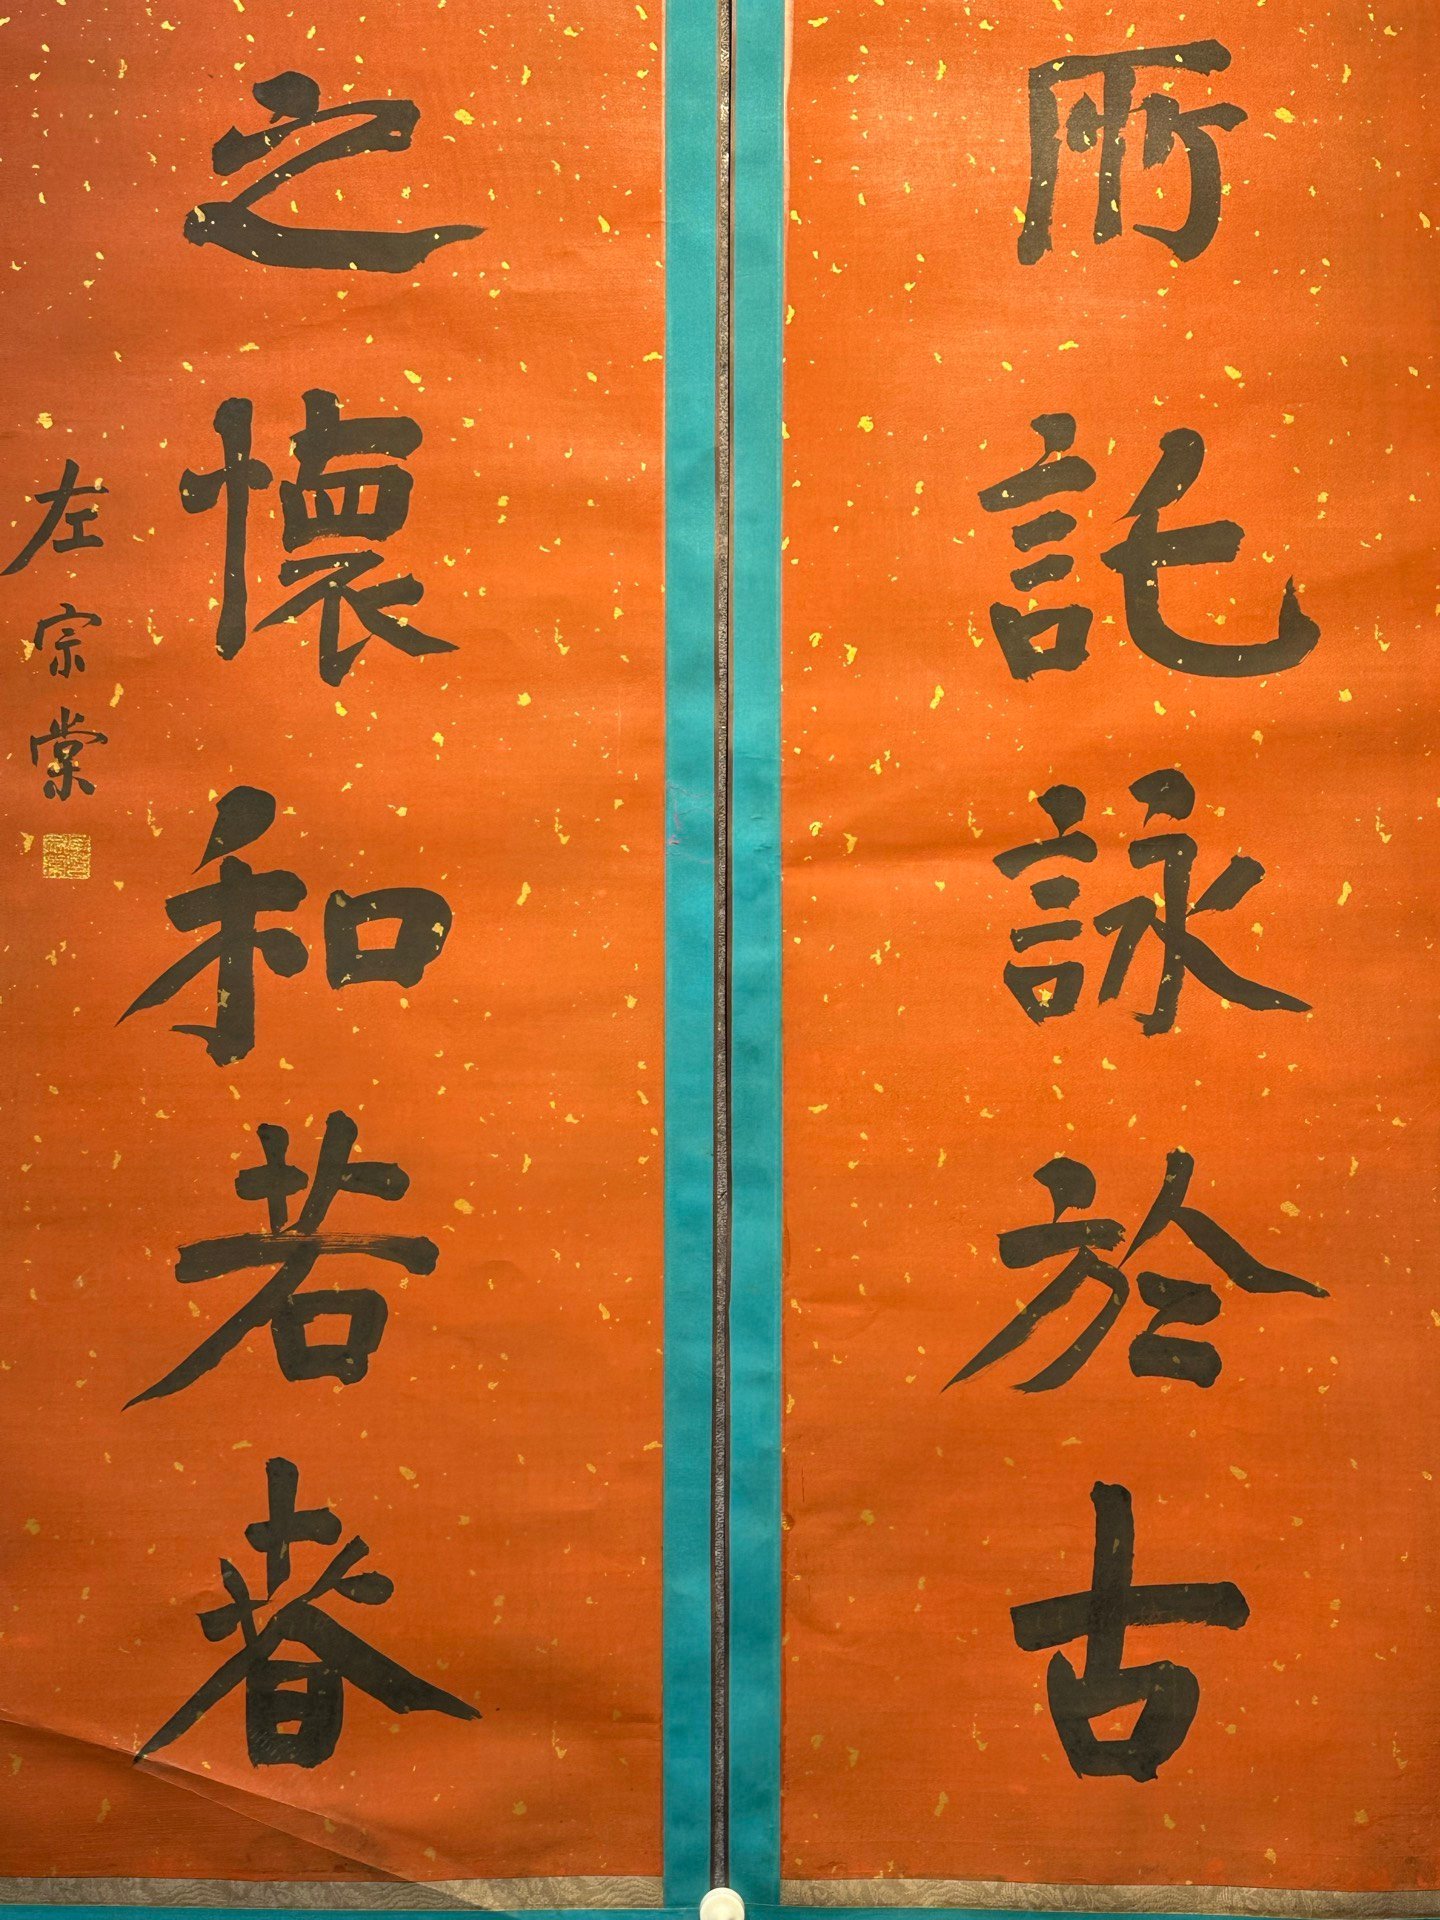 所託詠於古
之懷和若春
左宗棠